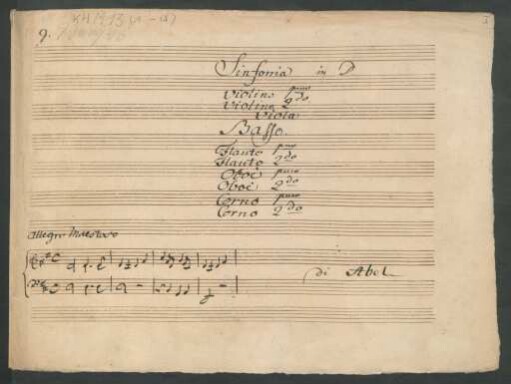 9.
Sinfonia in D
Violino 1mo
Violino 2do
Viola
Basso
Flauto 1mo
Flauto 2do
Oboè 1mo
Oboè 2do
Corno 1mo
Corno 2do
Allegro Maestoso
di Abel